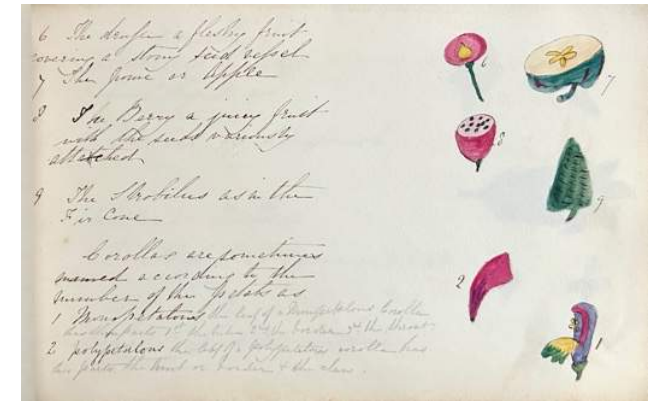 6 The drupe a fleshy fruit
covering a stony seed vessel
7 The pome or Apple
8 The Berry a juicy fruit
with the seeds variously
attatched
9 The Strobilus as in the
Fir Cone
Corollas are sometimes
named according to the
number of the petals as
1 Monopetalous the leaf of a Monopetalous Corolla
has three parts 1st the tube 2nd the border 3rd the throat
2 polypetalous the leaf of a polypetalous corolla has
two parts, the limb or border & the claw.
6
7
8
9
2
1